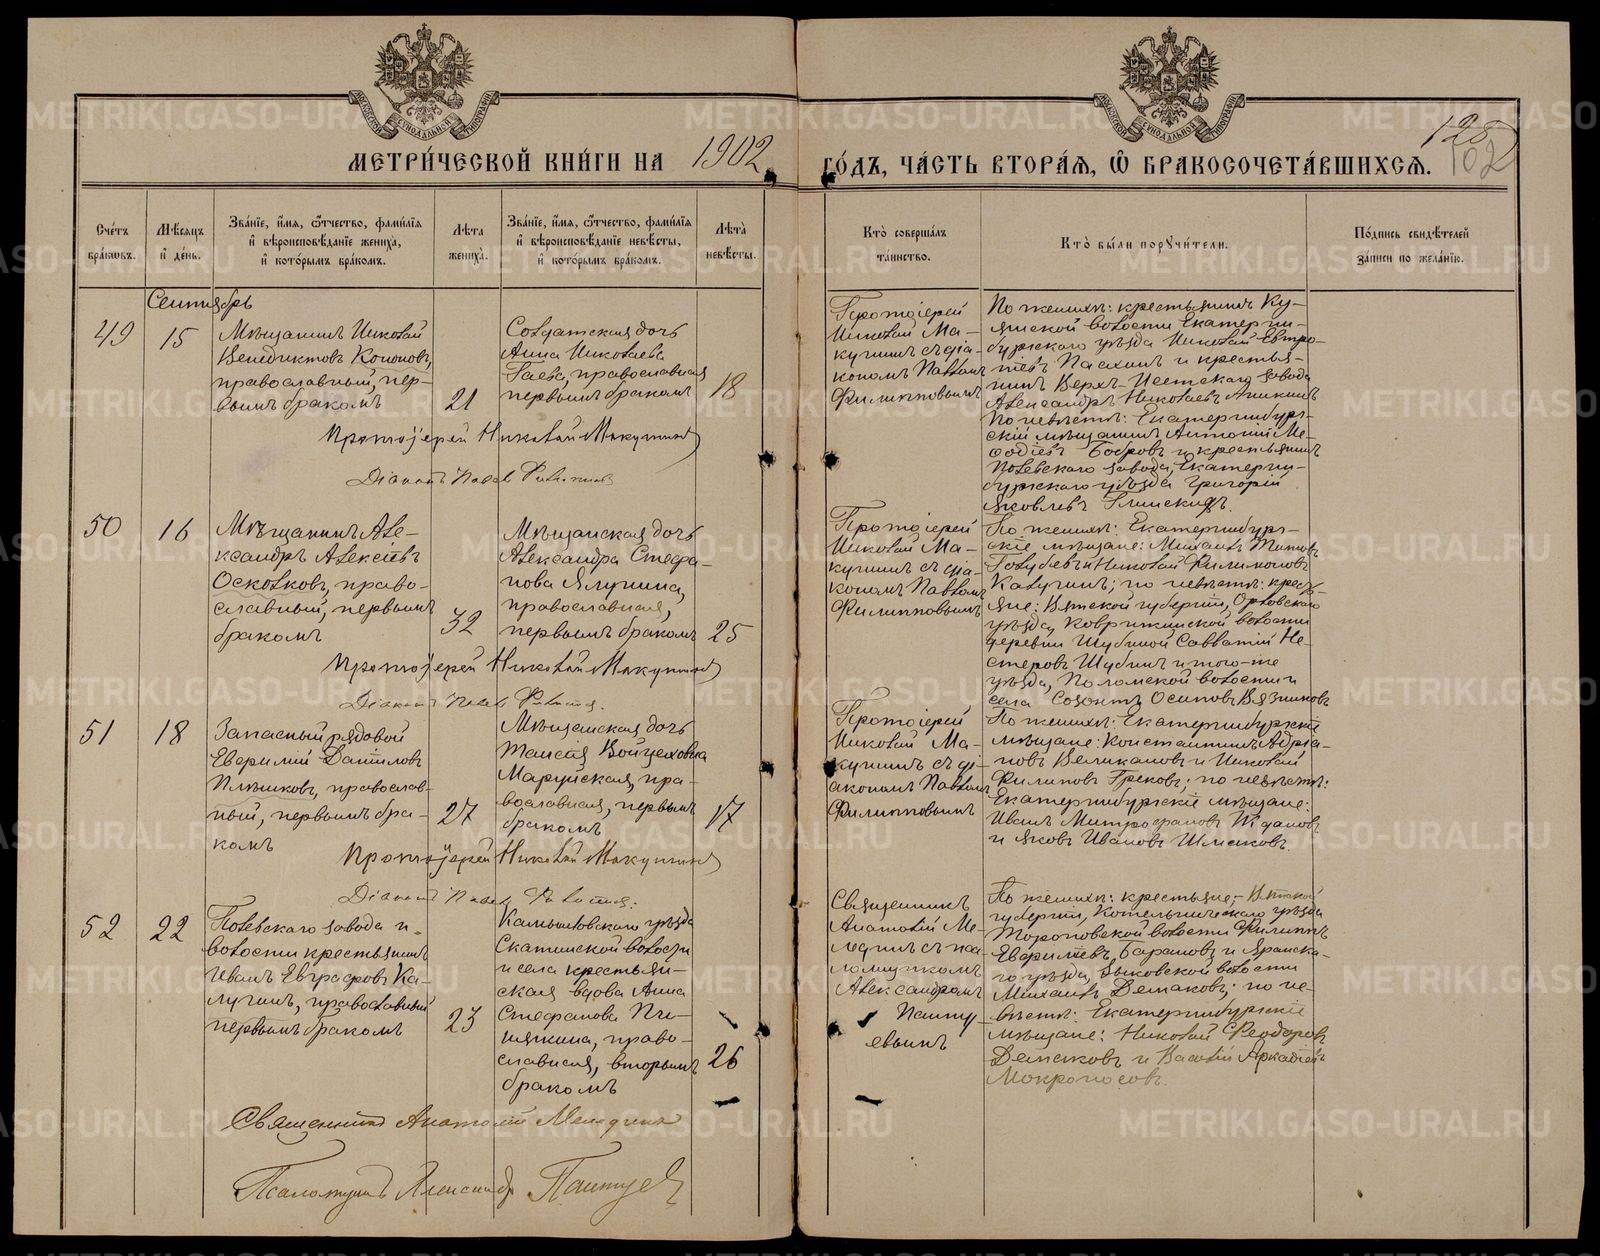 МЕТРИ́ЧЕСКОЙ КНИ́ГИ НА 1902 ГО́ДЪ, ЧА́СТЬ ВТОРА́Ѧ, Ѿ БРАКОСОЧЕТА́ВШИХСѦ.
128
102
Сче́тъ бра́ковъ.
Мѣ́сѧцъ и҆ де́нь.
Зва́нїе, и҆́мѧ, ѻ҆́тчество, фами́лїѧ
и҆ вѣроисповѣ́данїе жениха̀,
и҆ кото́рымъ бра́комъ.
Лѣ́та жениха̀.
Зва́нїе, и҆́мѧ, ѻ҆́тчество, фами́лїѧ
и҆ вѣроисповѣ́данїе невѣ́сты,
и҆ кото́рымъ бра́комъ.
Лѣ́та невѣ́сты.
Кто̀ соверша́лъ
та́инство.
Кто̀ бы́ли порꙋчи́тели.
По́дпись свидѣ́телей
за́писи по жела́нїю.
Сентябрь
49
15
Мѣщанинъ Николай
Венедиктовъ Кононовъ,
православный, пер-
вымъ бракомъ
21
Солдатская дочь
Анна Николаева
Гаева, православная
первымъ бракомъ
18
Протоіерей
Николай Ма-
кушинъ съ діа-
кономъ Павломъ
Филипповымъ
По женихѣ: крестьянинъ Ку-
яшской волости Екатерин-
бургскаго уѣзда Николай Евтро-
піевъ Пасхинъ и крестья-
нинъ Верхъ-Исетскаго завода
Александръ Николаевъ Аникинъ
По невѣстѣ: Екатеринбург-
скій мѣщанинъ Антоній Ме-
ѳодіевъ Бобровъ и крестьянинъ
Полевскаго завода, Екатерин-
бургскаго уѣзда Григорій
Яковлевъ Глинскихъ.
Протоіерей Николай Макушинъ
Діаконъ Павелъ
50
16
Мѣщанинъ Але-
ксандръ Алексѣевъ
Осколковъ, право-
славный, первымъ
бракомъ
32
Мѣщанская дочь
Александра Стефа-
нова Ялунина,
православная,
первымъ бракомъ
25
Протоіерей
Николай Ма-
кушинъ съ діа-
кономъ Павломъ
Филипповымъ
По женихѣ: Екатеринбург-
скіе мѣщане: Михаилъ Титовъ
Голубевъ и Николай Филимоновъ
Калугинъ; по невѣстѣ: кресть-
яне: Вятской губерніи, Орловскаго
уѣзда, Коврижинской волости
деревни Шубиной Савватій Не-
стеровъ Шубинъ и того-же
уѣзда, Поломской волости и
села Созонтъ Осиповъ Вязниковъ
Протоіерей Николай Макушинъ
Діаконъ
51
18
Запасный рядовой
Евфимій Даниловъ
Плѣшковъ, православ-
ный, первымъ бра-
комъ
27
Мѣщанская дочь
Таисія Войцеховна
Маруйская, пра-
вославная, первымъ
бракомъ
17
Протоіерей
Николай Ма-
кушинъ съ ді-
акономъ Павломъ
Филипповымъ
По женихѣ: Екатеринбургскіе
мѣщане: Константинъ Адріа-
новъ Великановъ и Николай
Филиповъ Грековъ; по невѣстѣ:
Екатеринбургскіе мѣщане:
Иванъ Митрофановъ Ждановъ
и Яковъ Ивановъ Шлыковъ.
Протоіерей Николай Макушинъ
Діаконъ
52
22
Полевскаго завода и
волости крестьянинъ
Иванъ Евграфовъ Ка-
лугинъ, православный
первымъ бракомъ
23
Камышловскаго уѣзда
Скатинской волости
и села крестьян-
ская вдова Анна
Стефанова
православная, вторымъ
бракомъ
26
Священникъ
Анатолій Ме-
ледынъ съ пса-
ломщикомъ
Александромъ
По женихѣ: крестьяне,- Вятской
губерніи, Котельническаго уѣзда
Тороповской волости Филиппъ
Евфиміевъ Барановъ и Яранска-
го уѣзда, Зыковской волости
Михаилъ Демаковъ; по не-
вѣстѣ: Екатеринбургскіе
мѣщане: Николай Ѳеодоровъ
Демаковъ и Василій Аркадіевъ
Мокроносовъ.
Священникъ Анатолій
Псаломщикъ Александръ
METRIKI.GASO-URAL.RU